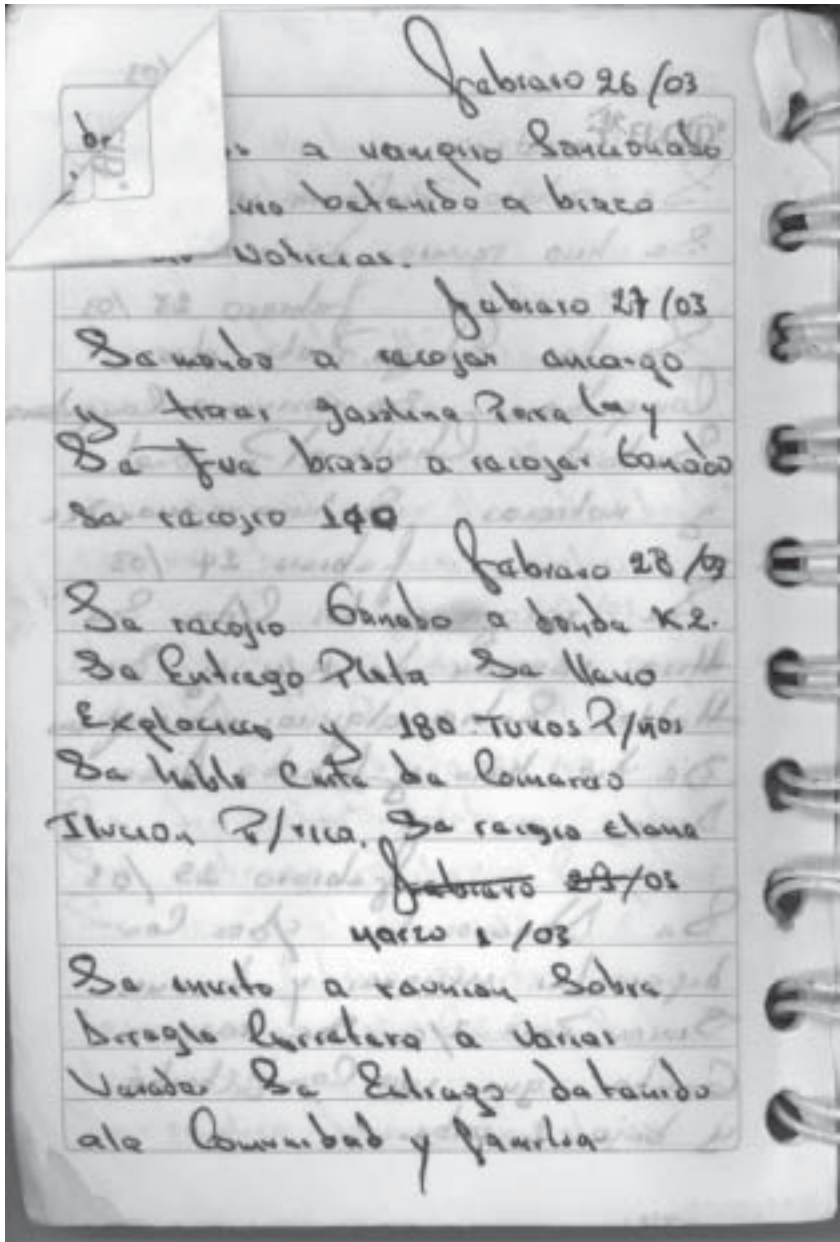 Febraro 26/03
a vampiro Sancionado
betanido a brazo
Noticias.
Febraro 27/03
Sa mando a racojar ancargo
y traar gasolina Para la y
Sa Fua braso a racojar Ganado
Sa racojio 140
Febraro 28/03
Sa racojio Ganado a donda K2.
Sa Entrago Plata Sa Llavo
y 180 TUVOS P/ños
Sa hablo Cuita da Comarcio
P/rica. Sa Elana
Febraro 29/03
Marzo 1/03
Sa invito a raunion Sobra
Arraglo Carratara a Varias
Varadas Sa Entrago datanido
ala Comunidad y familia